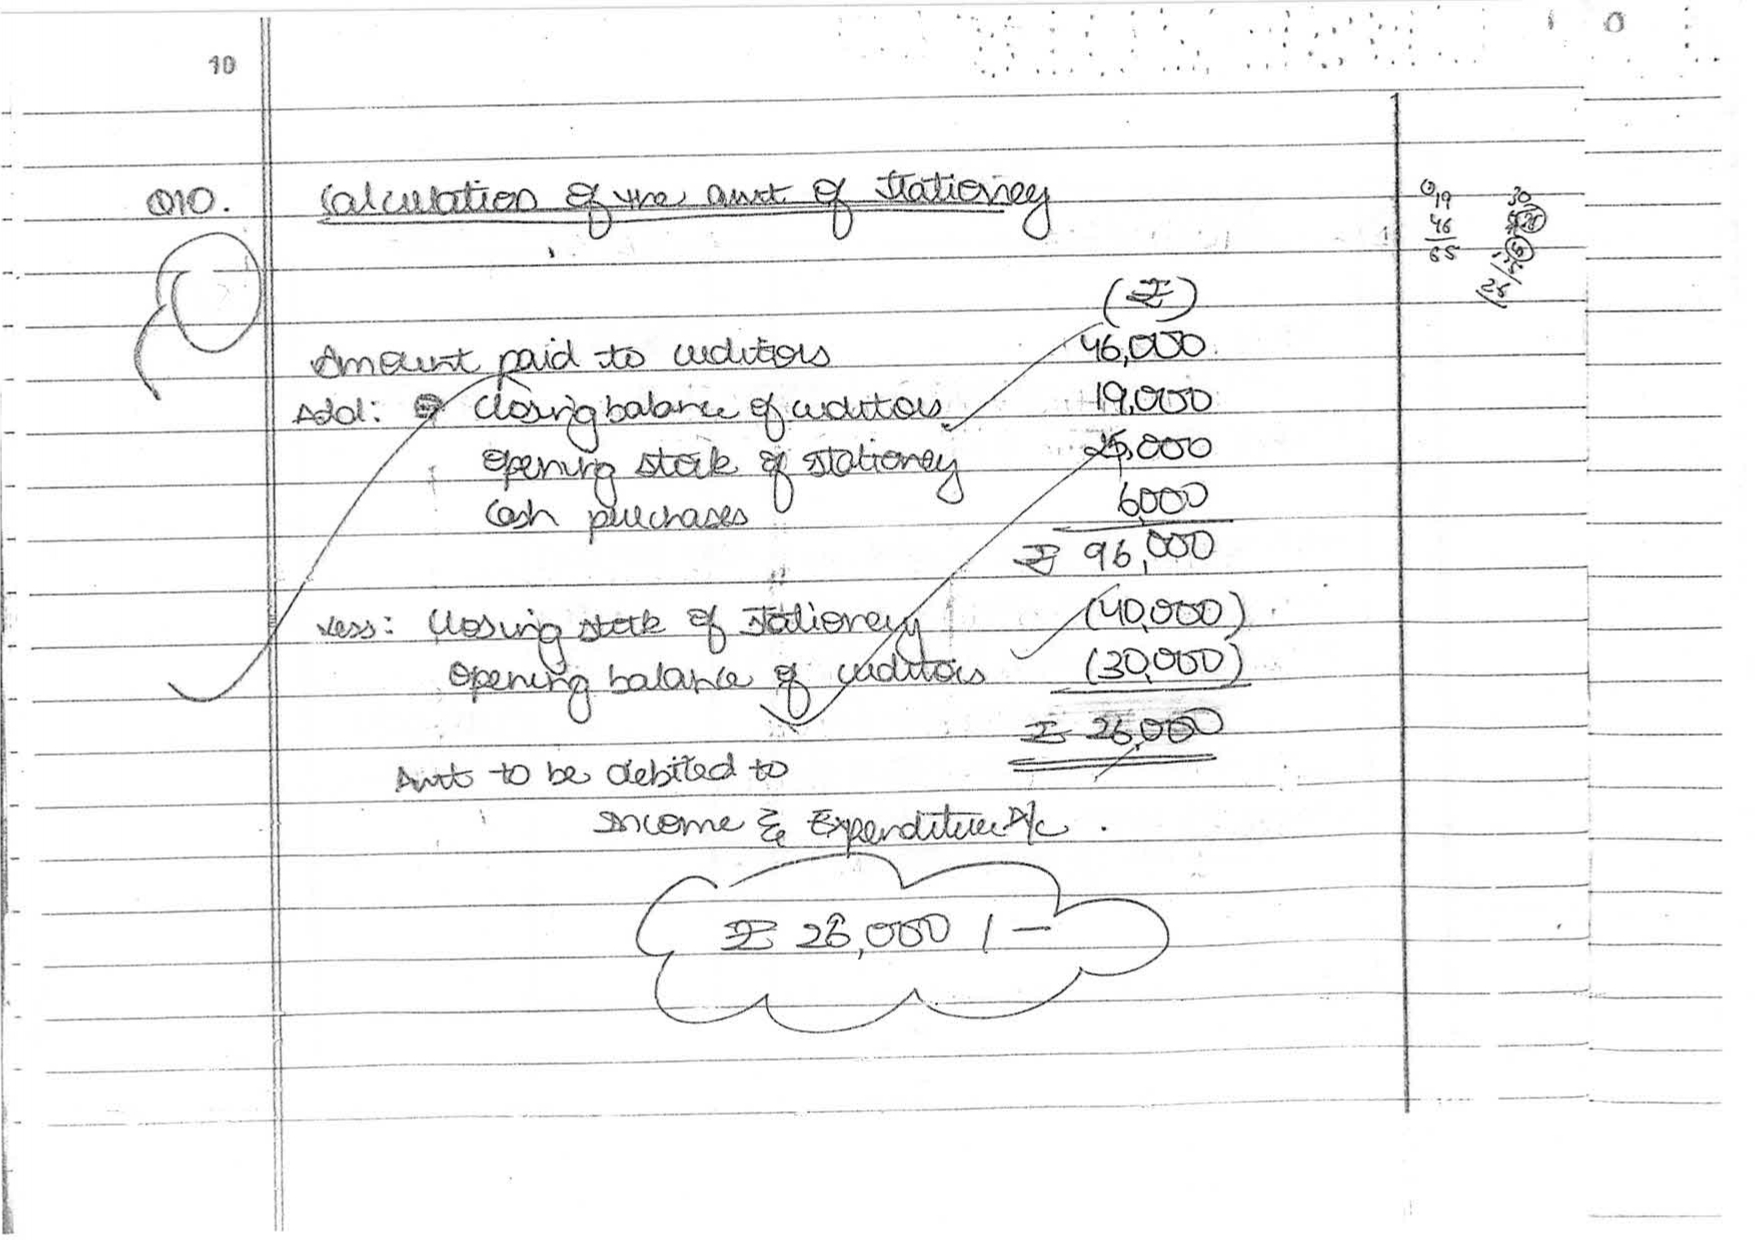 10
Q10. Calculation of the amt of stationey
(₹)
Amount paid to creditors 46,000
Add: closing balance of creditors 19,000
Opening stock of stationey 25,000
Cash purchases 6000
₹ 96,000
Less: Closing stock of stationery (40,000)
Opening balance of creditors (30,000)
₹ 26,000
Amt to be debited to
Income & Expenditure A/c.
₹ 26,000 /-
19
46
65
30
26